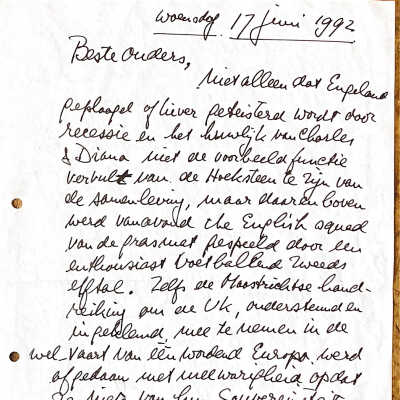 woensdag 17 juni 1992
Beste ouders,
Niet alleen dat Engeland
geplaagd of liever geteisterd wordt door
recessie en het huwelijk van Charles
& Diana niet de voorbeeldfunctie
vervult van de Hoeksteen te zijn van
de samenleving, maar daarenboven
werd vanavond the English squad
van de grasmat gespeeld door een
enthousiast voetballend Zweeds
elftal. Zelfs de Maastrichtse hand-
reiking om de UK, ondersteund en
ingeklemd, mee te nemen in de
wel-vaart van één wordend Europa werd
afgedaan met meewarigheid opdat
ze niets van hun Souvereiniteit